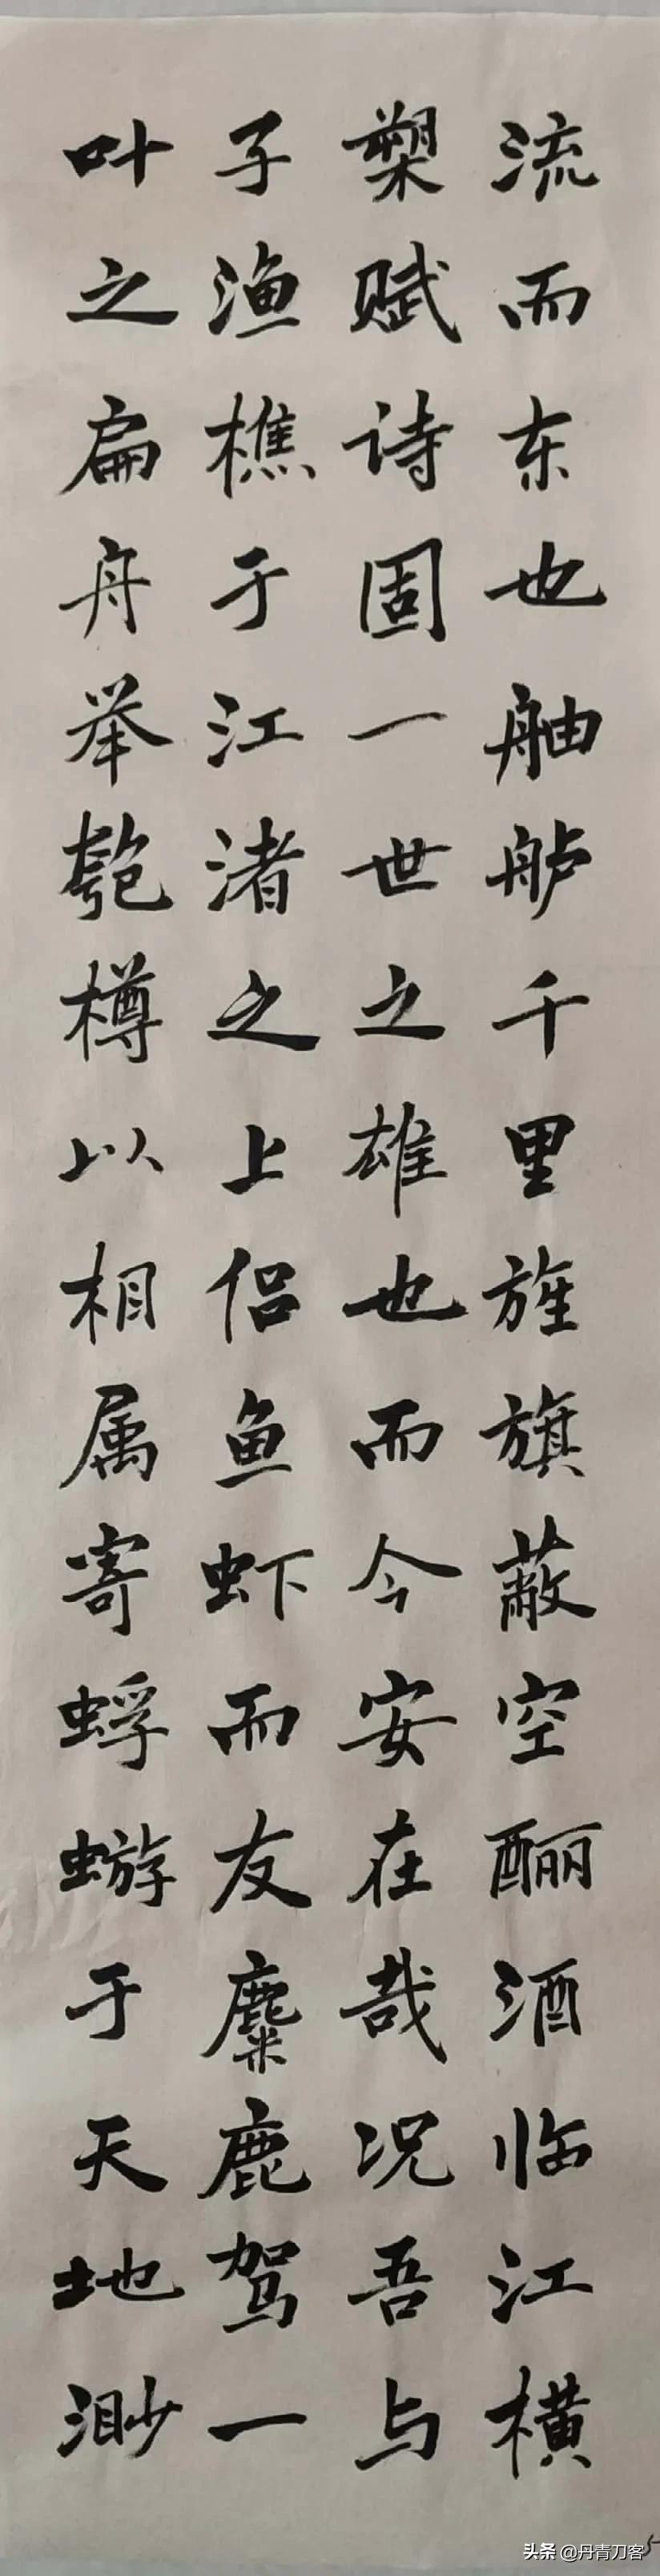 流而东也舳舻千里旌旗蔽空酾酒临江横
槊赋诗固一世之雄也而今安在哉况吾与
子渔樵于江渚之上侣鱼虾而友麋鹿驾一
叶之扁舟举匏樽以相属寄蜉蝣于天地渺
头条 @丹青刀客